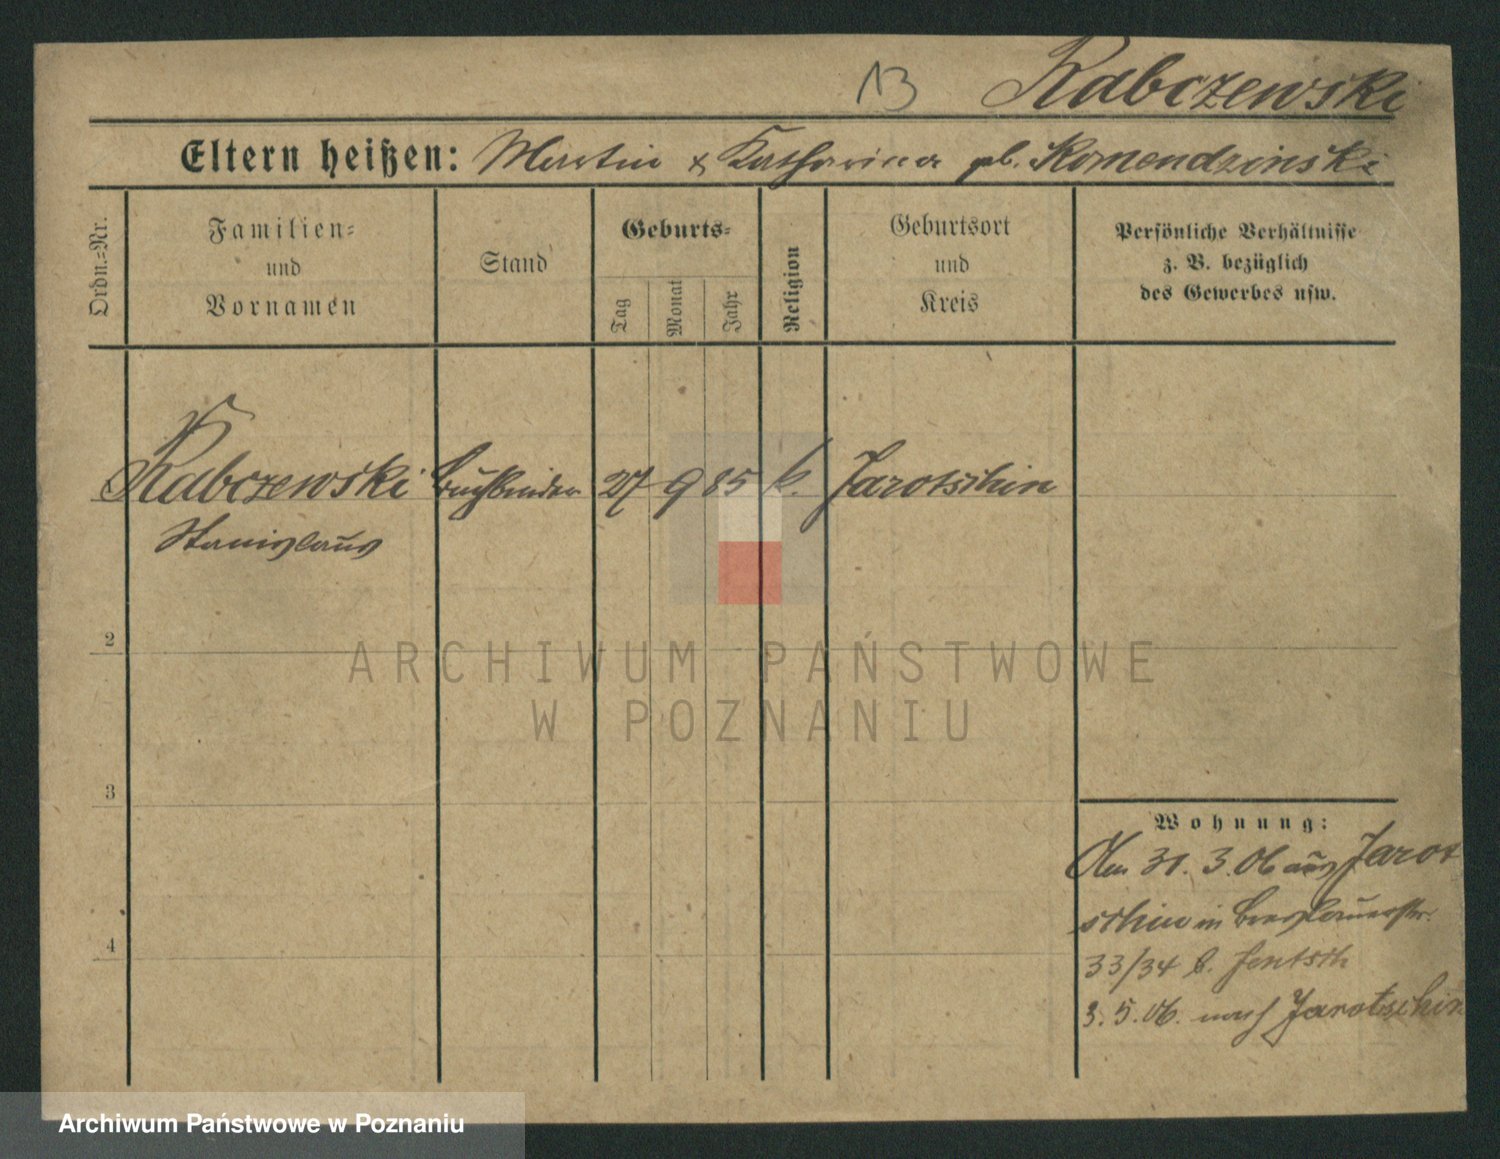 13 Rabczewski
Eltern heißen: Martin & Katharina gb. Komendzinski
Ordn.-Nr.
Familien-
und
Vornamen
Stand
Geburts-
Tag
Monat
Jahr
Religion
Geburtsort
und
Kreis
Persönliche Verhältnisse
z. B. bezüglich
des Gewerbes usw.
Rabczewski Buchbinder 27 9 85 k. Jarotschin
Stanislaus
2
3
4
Wohnung:
Am 31. 3. 06 aus Jarot
schin in Breslauerstr.
33/34 b. Jentsch
3. 5. 06. nach Jarotschin
ARCHIWUM PAŃSTWOWE
W POZNANIU
Archiwum Państwowe w Poznaniu